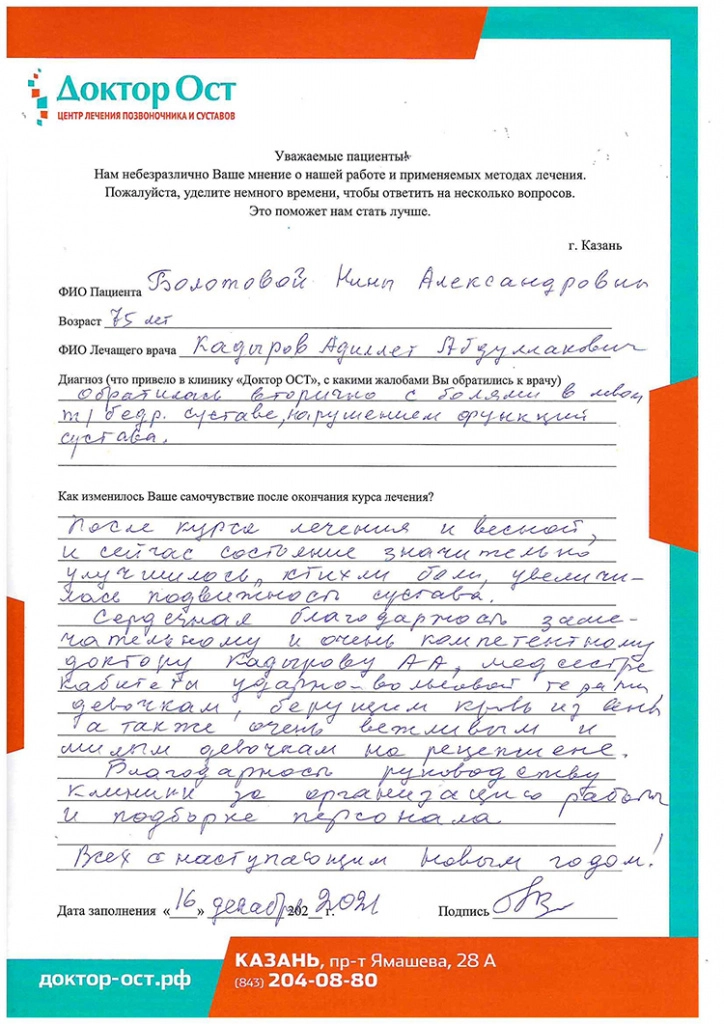 Доктор Ост
ЦЕНТР ЛЕЧЕНИЯ ПОЗВОНОЧНИКА И СУСТАВОВ
Уважаемые пациенты!
Нам небезразлично Ваше мнение о нашей работе и применяемых методах лечения.
Пожалуйста, уделите немного времени, чтобы ответить на несколько вопросов.
Это поможет нам стать лучше.
г. Казань
ФИО Пациента Болотовой Нины Александровны
Возраст 75 лет
ФИО Лечащего врача Кадыров Адиллет Абдуллакович
Диагноз (что привело в клинику «Доктор ОСТ», с какими жалобами Вы обратились к врачу)
Обратилась вторично с болями в левом
т/бедр. суставе, нарушением функций
сустава.
Как изменилось Ваше самочувствие после окончания курса лечения?
После курса лечения и весной,
и сейчас состояние значительно
улучшилось, стихли боли, увеличи-
лась подвижность сустава.
Сердечная благодарность заме-
чательному и очень компетентному
доктору Кадырову АА, медсестре
кабинета ударно-волновой терапии,
девочкам, берущим кровь из вены,
а также очень вежливым и
милым девочкам на рецепшене.
Благодарность руководству
клиники за организацию работы
и подборке персонала
Всех с наступающим Новым годом!
Дата заполнения «16» декабря 202 2021 г. Подпись
доктор-ост.рф
КАЗАНЬ, пр-т Ямашева, 28 А
(843) 204-08-80